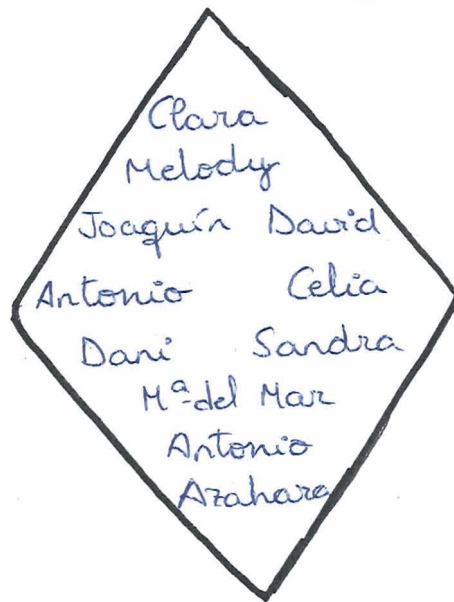 Clara
Melody
Joaquín David
Antonio Celia
Dani Sandra
Mª del Mar
Antonio
Azahara